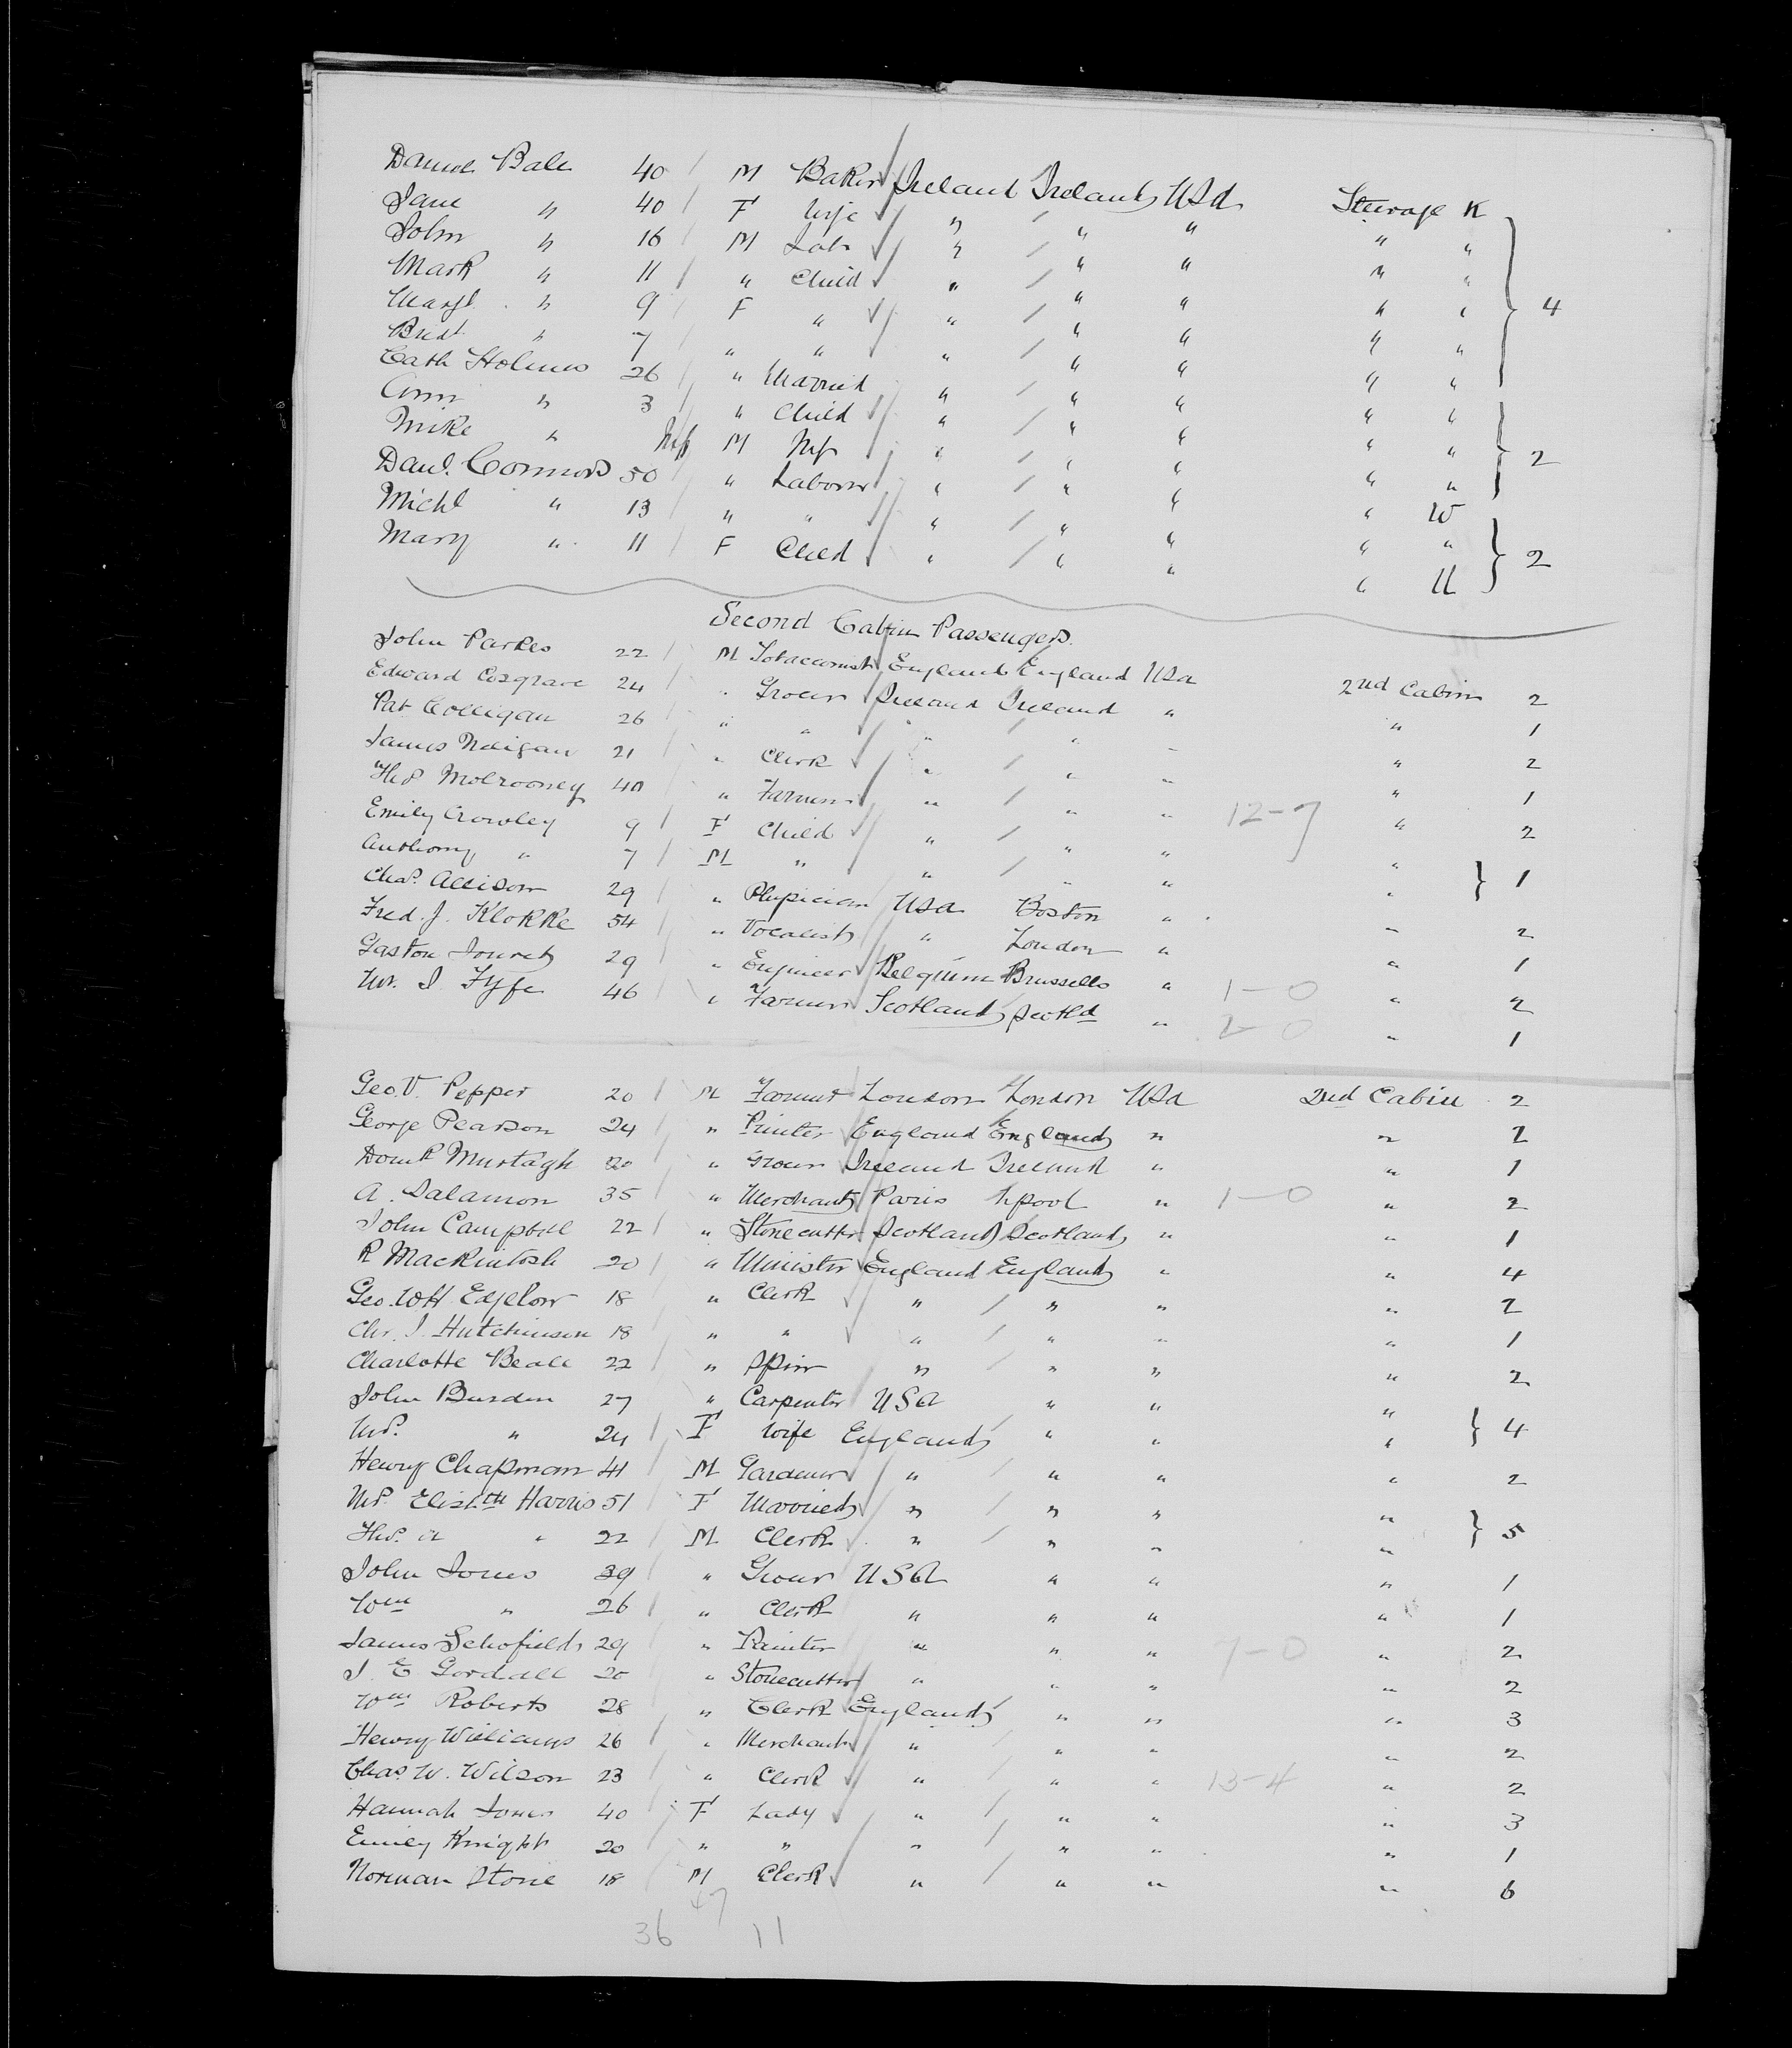 Daniel Bale 40 M Baker Ireland Ireland USA Steerage K
Jane " 40 F Wife " " " " "
John " 16 M Lab " " " " "
Mark " 11 " Child " " " " "
Margt " 9 F " " " " " " 4
Bridt " 7 " " " " " " "
Cath Holmes 26 " Married " " " " "
Ann " 3 " Child " " " " "
Mike " Inf M Inf " " " " " 2
Danl. Connors 50 " Laborer " " " " W
Michl " 13 " " " " " " "
Mary " 11 F Child " " " " U 2
Second Cabin Passengers
John Parkes 22 M Tobacconist England England USA 2nd Cabin 2
Edward Cosgrave 24 " Grocer Ireland Ireland " " 1
Pat Colligan 26 " " " " " " 2
James Neligan 21 " Clerk " " " " 1
Thos Molrooney 40 " Farmer " " " 12-7 " 2
Emily Crowley 9 F Child " " " "
Anthony " 7 M " " " " " 1
Chas. Allison 29 " Physician USA Boston " " 2
Fred. J. Klokke 54 " Vocalist " London " " 1
Gaston 29 " Engineer Belgium Brussells " 1-0 " 2
Mr. J. Fyfe 46 " Farmer Scotland Scotld " 2-0 " 1
Geo. V. Pepper 20 M Farmer London London USA 2nd Cabin 2
George Pearson 24 " Printer England England " " 2
Domk Murtagh 20 " Grocer Ireland Ireland " " 1
A. Salamon 35 " Merchant Paris Lpool " 1-0 " 2
John Campbell 22 " Stonecutter Scotland Scotland " " 1
R Mackintosh 20 " Minister England England " " 4
Geo. WH. Edgelow 18 " Clerk " " " " 2
Chr. J. Hutchinson 18 " " " " " " 1
Charlotte Beale 22 " Spin " " " " 2
John Burden 27 " Carpenter USA " " "
Mrs. " 24 F Wife England " " " 4
Henry Chapman 41 M Gardener " " " " 2
Mrs. Elizbth Harris 51 F Married " " " "
Thos. A " 22 M Clerk " " " " 5
John Jones 39 " Grocer USA " " " 1
Wm " 26 " Clerk " " " " 1
James Schofield 29 " Painter " " " 7-0 " 2
J. E Gordall 20 " Stonecutter " " " " 2
Wm Roberts 28 " Clerk England " " " 3
Henry Williams 26 " Merchant " " " " 2
Chas. W. Wilson 23 " Clerk " " " 13-4 " 2
Hannah Jones 40 F Lady " " " " 3
Emily Knight 20 " " " " " " 1
Norman Stone 18 M Clerk " " " " 6
47
36 11